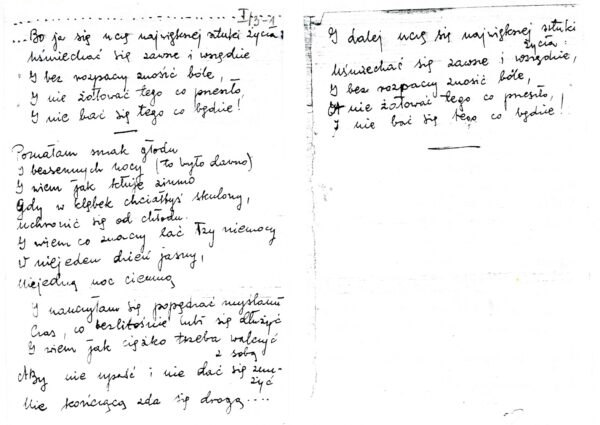 I/3-1
Bo ja się uczę największej sztuki życia:
Uśmiechać się zawsze i wszędzie
I bez rozpaczy znosić bóle,
I nie żałować tego co przeszło,
I nie bać się tego co będzie!
Poznałam smak głodu
I bezsennych nocy (to było dawno)
I wiem jak kłuje zimno
Gdy w kłębek chciałbyś skulony,
uchronić się od chłodu.
I wiem co znaczy lać łzy niemocy
W niejeden dzień jasny,
Niejedną noc ciemną
I nauczyłam się popędzać myślami
Czas, co bezlitośnie lubi się dłużyć
I wiem jak ciężko trzeba walczyć
z sobą
Aby nie upaść i nie dać się znu-
żyć
Nie kończącą zda się drogą....
I dalej uczę się największej sztuki
życia:
Uśmiechać się zawsze i wszędzie,
I bez rozpaczy znosić bóle,
A nie żałować tego co przeszło,
I nie bać się tego co będzie!